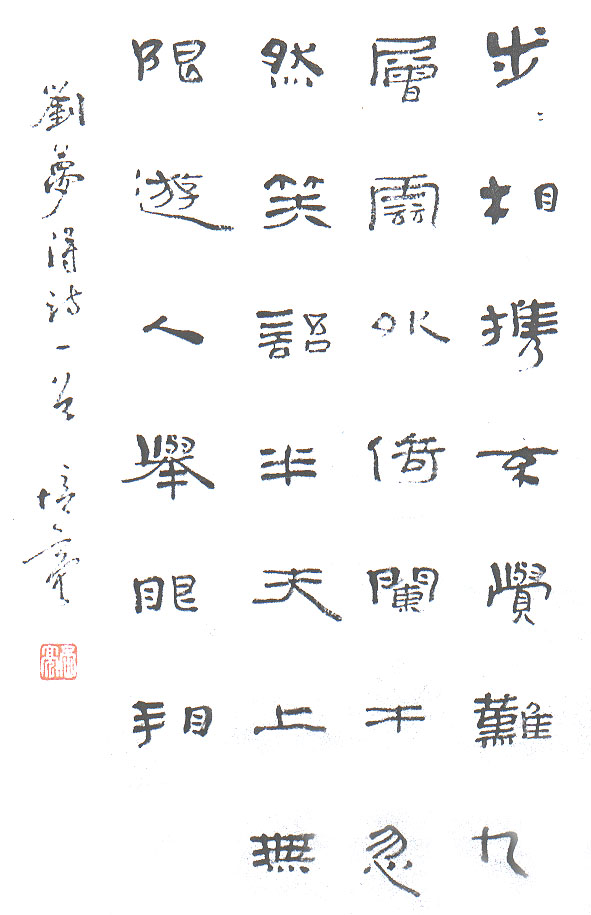 步〻相攜不覺難九
層雲外倚闌干忽
然笑語半天上無
限遊人舉眼看
劉夢得詩一首